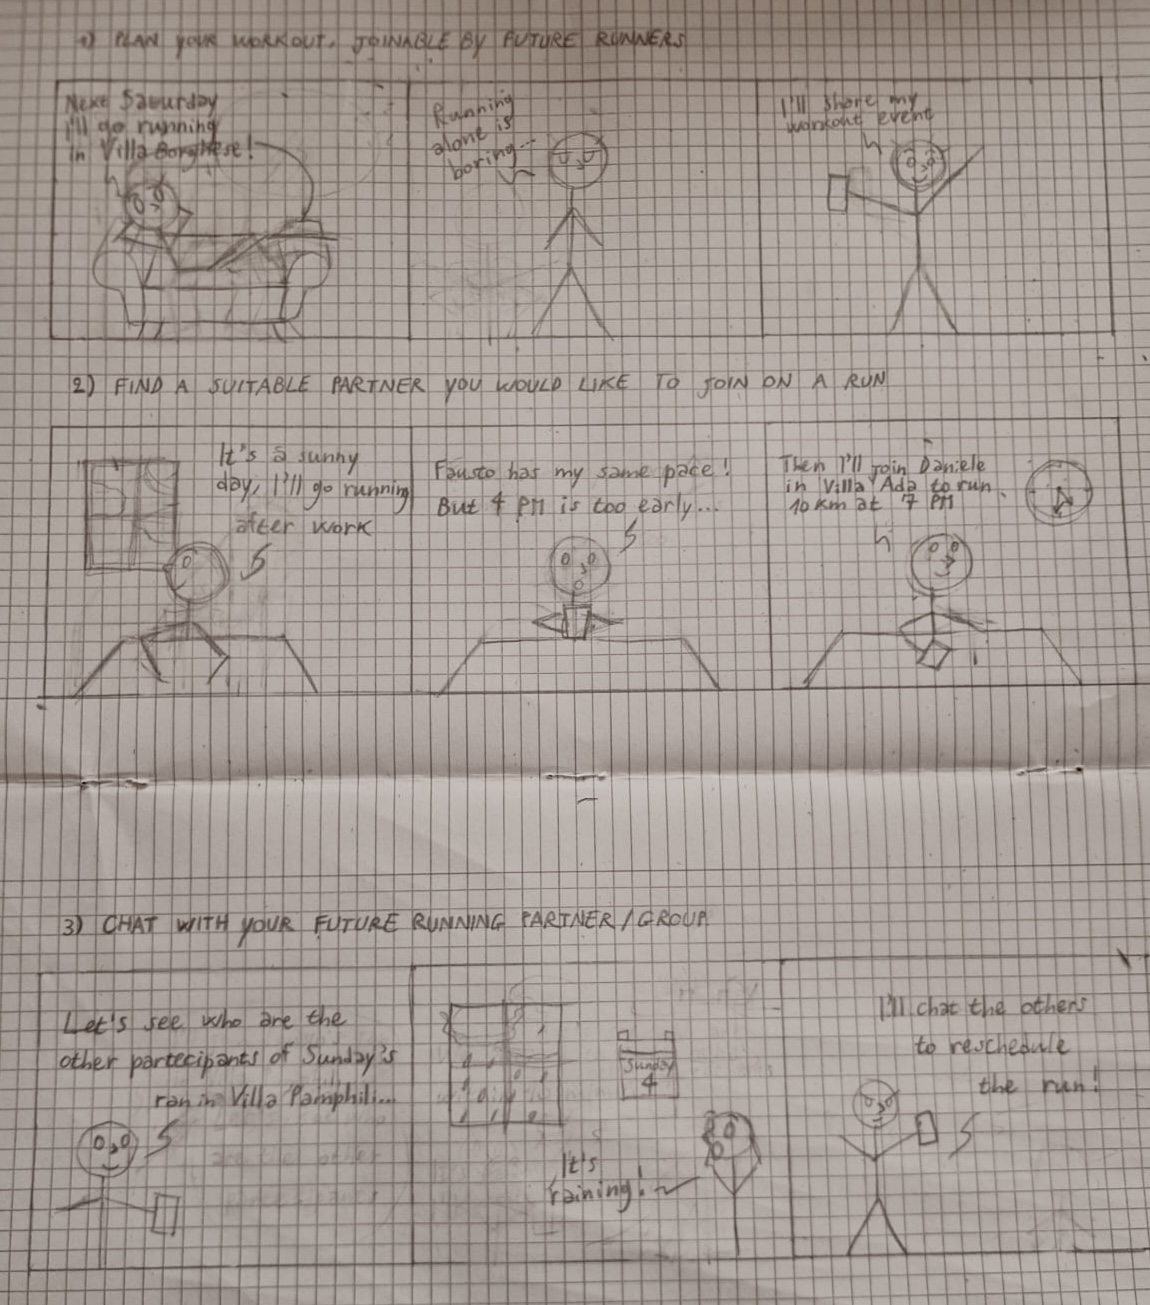 1) PLAN YOUR WORKOUT, JOINABLE BY FUTURE RUNNERS
Next Saturday
I'll go running
in Villa Borghese!
Running
alone is
boring...
I'll share my
workout event
2) FIND A SUITABLE PARTNER YOU WOULD LIKE TO JOIN ON A RUN
It's a sunny
day, I'll go running
after work
Fausto has my same pace!
But 4 PM is too early...
Then I'll join Daniele
in Villa Ada to run
10 km at 7 PM
3) CHAT WITH YOUR FUTURE RUNNING PARTNER/GROUP
Let's see who are the
other partecipants of Sunday's
run in Villa Pamphili...
Sunday
4
It's
raining!
I'll chat the others
to reschedule
the run!